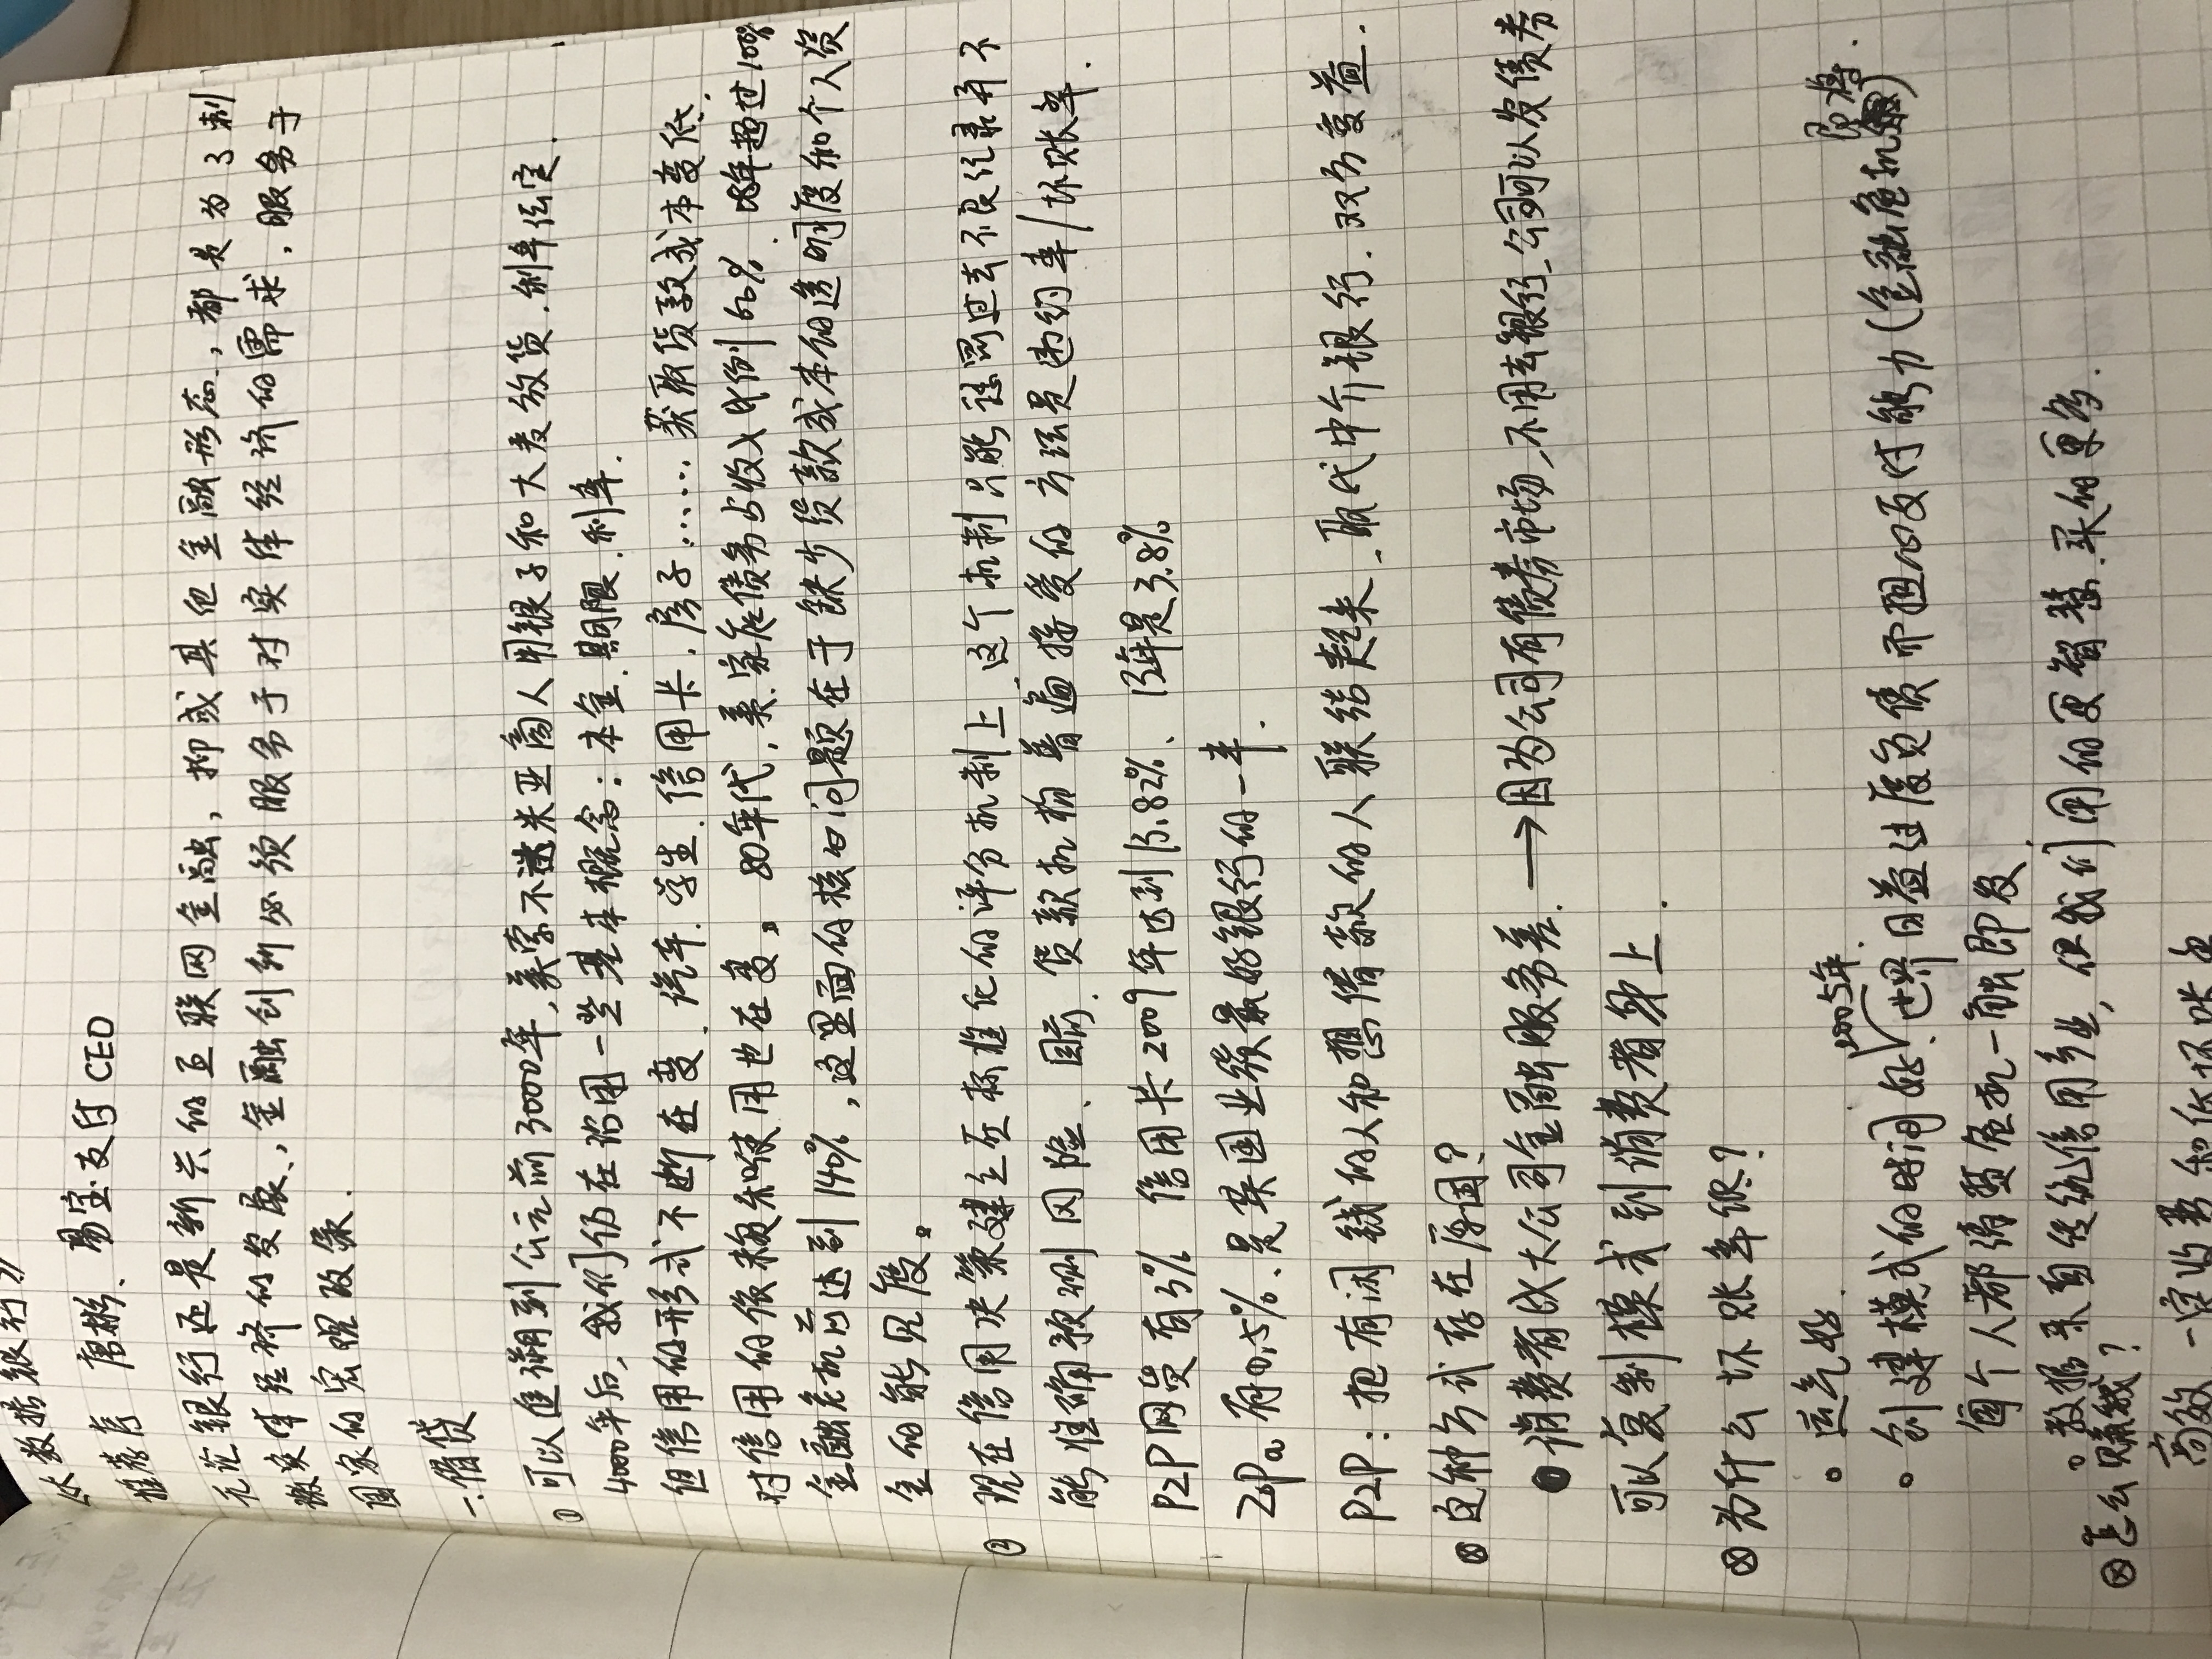 《大数据银行》
推荐序 唐彬、易宝支付 CEO
无论银行还是新兴的互联网金融，抑或其他金融形态，都是为了刺
激实体经济的发展，金融创新必须服务于对实体经济的需求，服务于
国家的宏观政策.
一.借贷
① 可以追溯到公元前3000年,美索不达米亚商人用银子和大麦放贷.利率法定.
4000年后,我们仍在沿用一些基本概念:本金.期限.利率.
但信用的形式不断在变.汽车.学生.信用卡.房子……获取贷款成本变低.
对信用的依赖和使用也在变。80年代,美.家庭债务占收入比例60%.08年超过100%
金融危机前达到140%,这里面的核心问题在于缺少贷款成本的透明度和个人资
金的能见度。
② 现在信用决策建立在标准化的评分机制上.这个机制只能惩罚过去不良纪录并不
能准确预测风险、目前.贷款机构普遍接受的方法是违约率/坏账率.
P2P网贷有3% 信用卡2009年达到13.82%、13年是3.8%
Zopa 有0.5%.是英国业绩最好银行的一半.
P2P:把有闲钱的人和想借款的人联结起来.取代中介银行.双方受益.
⊗ 这种方式存在原因?
● 消费者比大公司金融服务差.→因为公司有债券市场,不用去银行.公司可以发债券
可以复制模式到消费者身上.
⊗ 为什么坏账率低?
○ 运气好.
2005年. 即将.
○ 创建模式的时间好.世界日益过度负债而担心支付能力(金融危机)
每个人都消费危机一触即发.
○ 数据来自传统信用产业,但我们用的更智慧.买的更多.
⊗ 怎么赚钱?
高效.一定收费和低坏账率